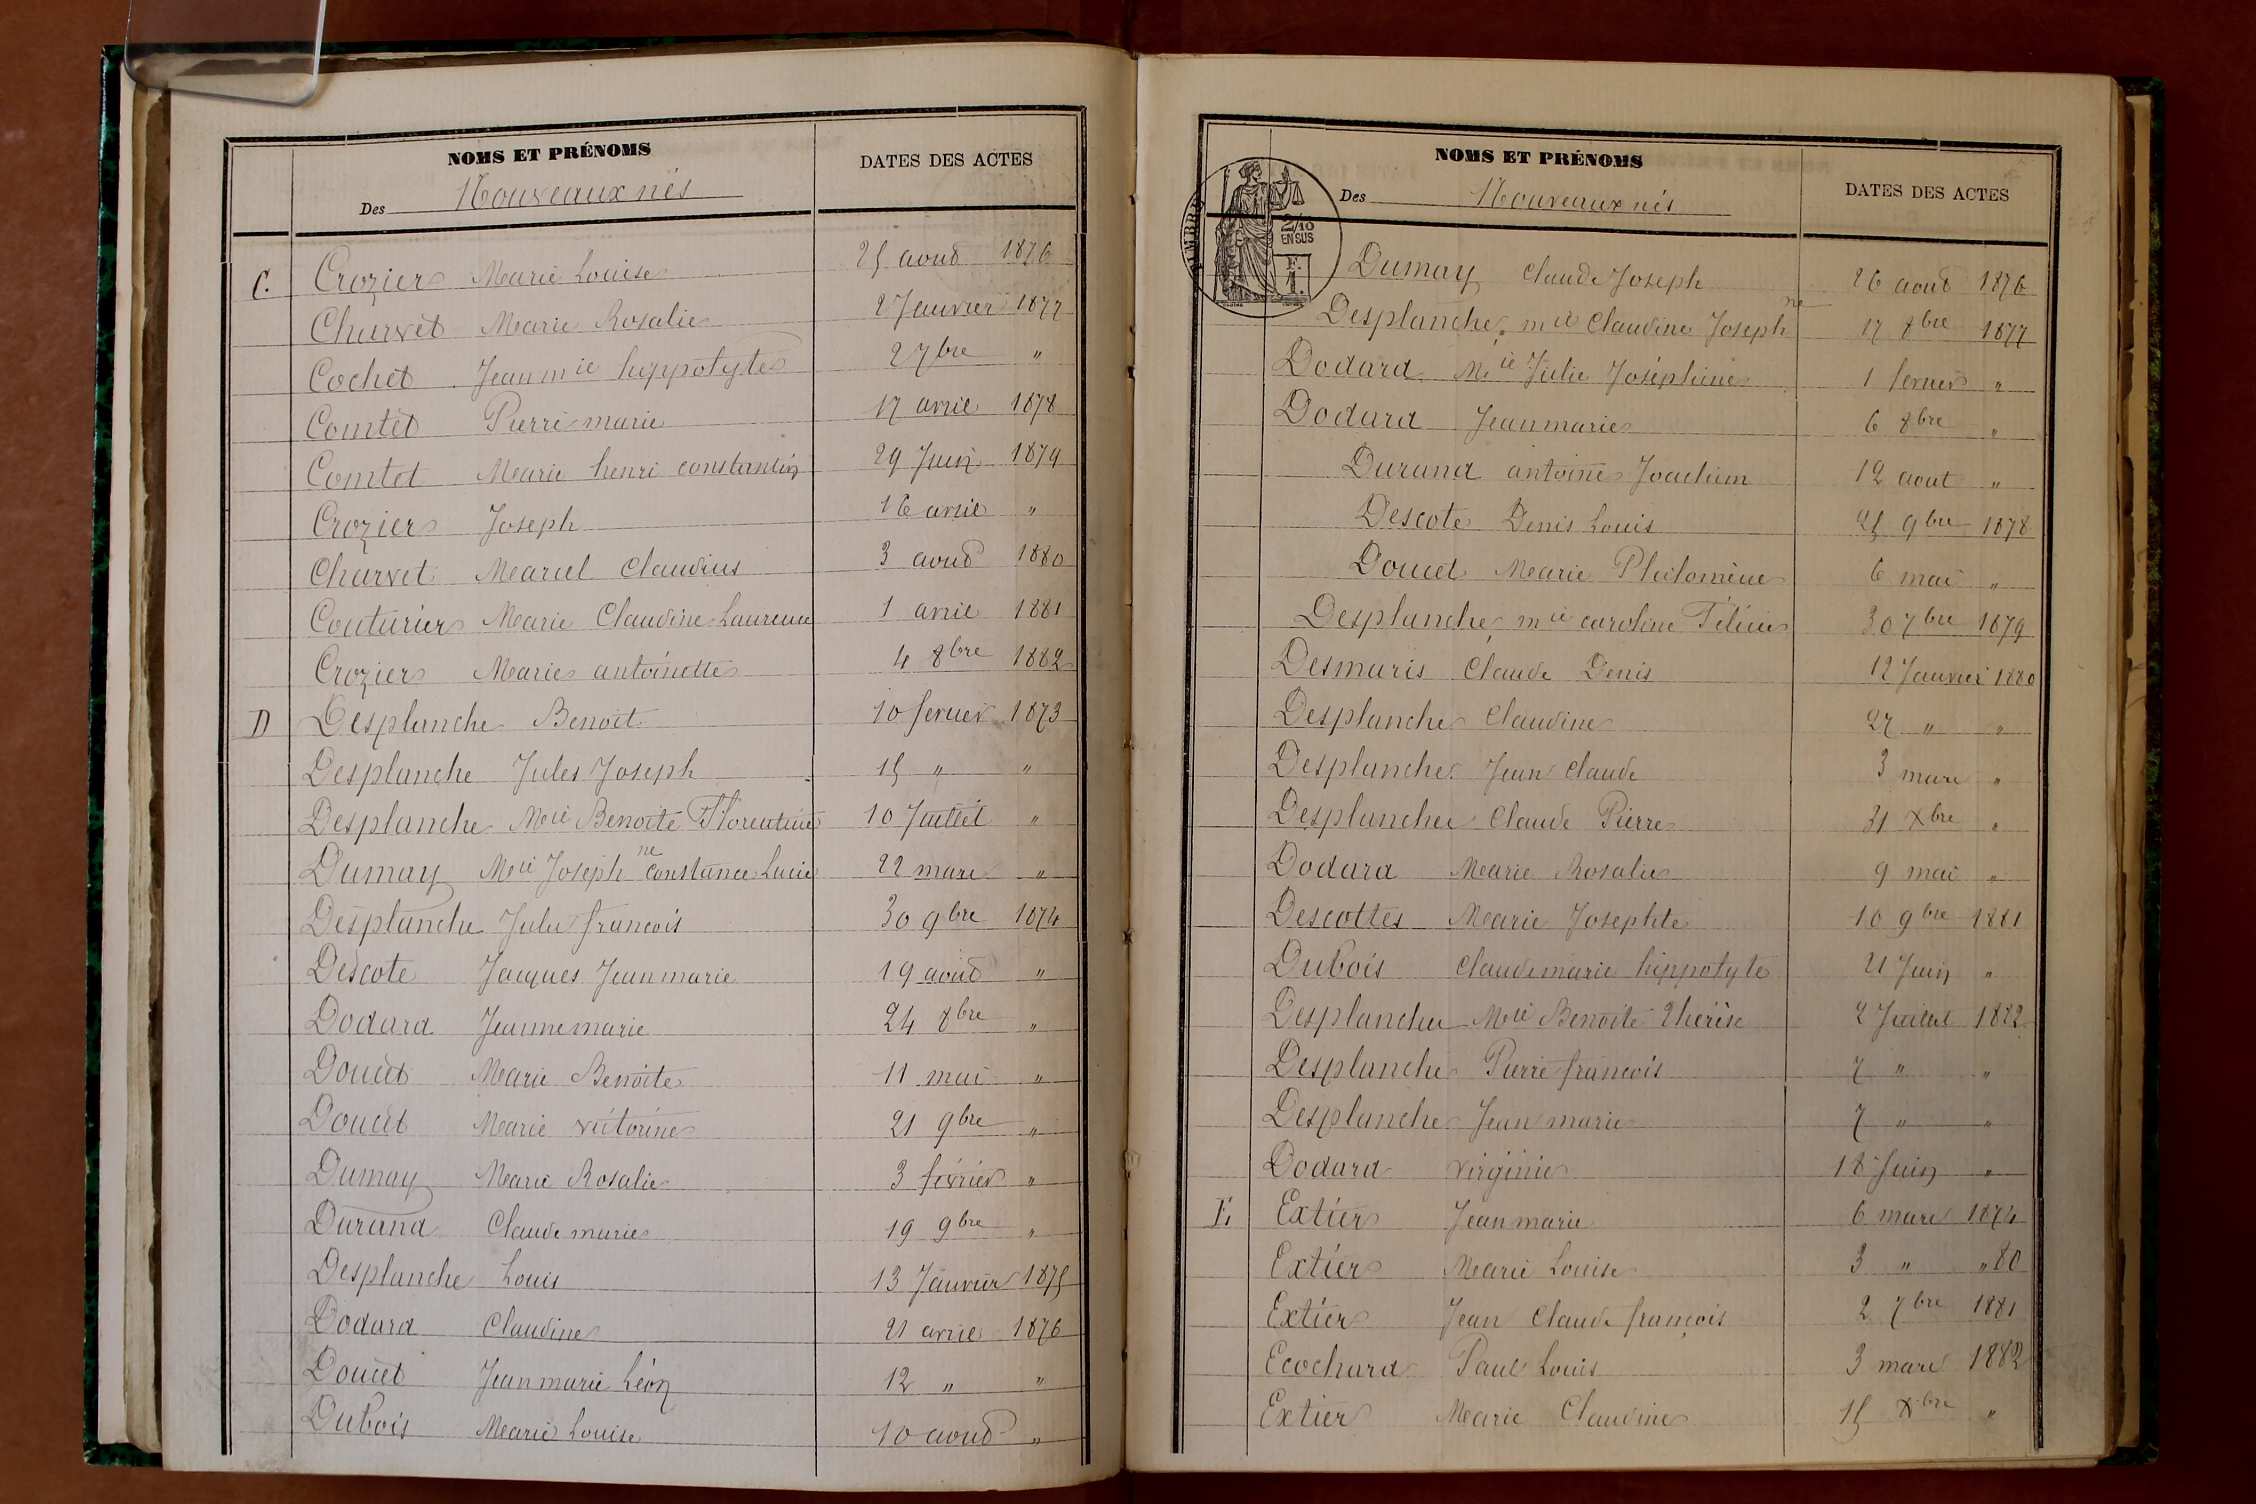 NOMS ET PRÉNOMS
DATES DES ACTES
Des Nouveaux nés
C. Crozier Marie Louise 25 aout 1876
Charvet Marie Rosalie 2 Janvier 1877
Cochet Jean mie hippolyte 2 7bre "
Comtet Pierre marie 17 avril 1878
Comtet Marie henri constantin 29 Juin 1879
Crozier Joseph 16 avril "
Charvet Marcel Claudius 3 aout 1880
Couturier Marie Claudine Laurence 1 avril 1881
Crozier Marie antoinette 4 8bre 1882
D Desplanche Benoit 10 fevrier 1873
Desplanche Jules Joseph 15 " "
Desplanche Mie Benoite Florentine 10 Juillet "
Dumay Mie Josephne Constance Lucie 22 mars "
Desplanche Jules francois 30 9bre 1874
Descote Jacques Jean marie 19 aout "
Dodard Jeanne marie 24 8bre "
Doucet Marie Benoite 11 mai "
Doucet Marie victorine 21 9bre "
Dumay Marie Rosalie 3 février "
Durand Claude marie 19 9bre "
Desplanche Louis 13 Janvier 1875
Dodard Claudine 21 avril 1876
Doucet Jean marie Léon 12 " "
Dubois Marie Louise 10 aout "
NOMS ET PRÉNOMS
DATES DES ACTES
Des Nouveaux nés
TIMBRE
2/10
EN SUS
F.
1.
Dumay Claude Joseph 26 aout 1876
Desplanche mie Claudine Josephne 17 8bre 1877
Dodard Mie Julie Joséphine 1 fevrier "
Dodard Jean marie 6 8bre "
Durand antoine Joachim 12 aout "
Descote Denis Louis 25 9bre 1878
Doucet Marie Philomène 6 mai "
Desplanche mie caroline Félicie 30 7bre 1879
Desmaris Claude Denis 12 Janvier 1880
Desplanche Claudine 27 " "
Desplanche Jean Claude 3 mars "
Desplanche Claude Pierre 31 Xbre "
Dodard Marie Rosalie 9 mai "
Descottes Marie Josephte 10 9bre 1881
Dubois Claude marie hippolyte 21 Juin "
Desplanche Mie Benoite Thérèse 2 Juillet 1882
Desplanche Pierre francois 7 " "
Desplanche Jean marie 7 " "
Dodard virginie 18 Juin "
E. Extier Jean marie 6 mars 1874
Extier Marie Louise 3 " " 80
Extier Jean Claude françois 2 7bre 1881
Ecochard Paul Louis 3 mars 1882
Extier Marie Claudine 15 Xbre "